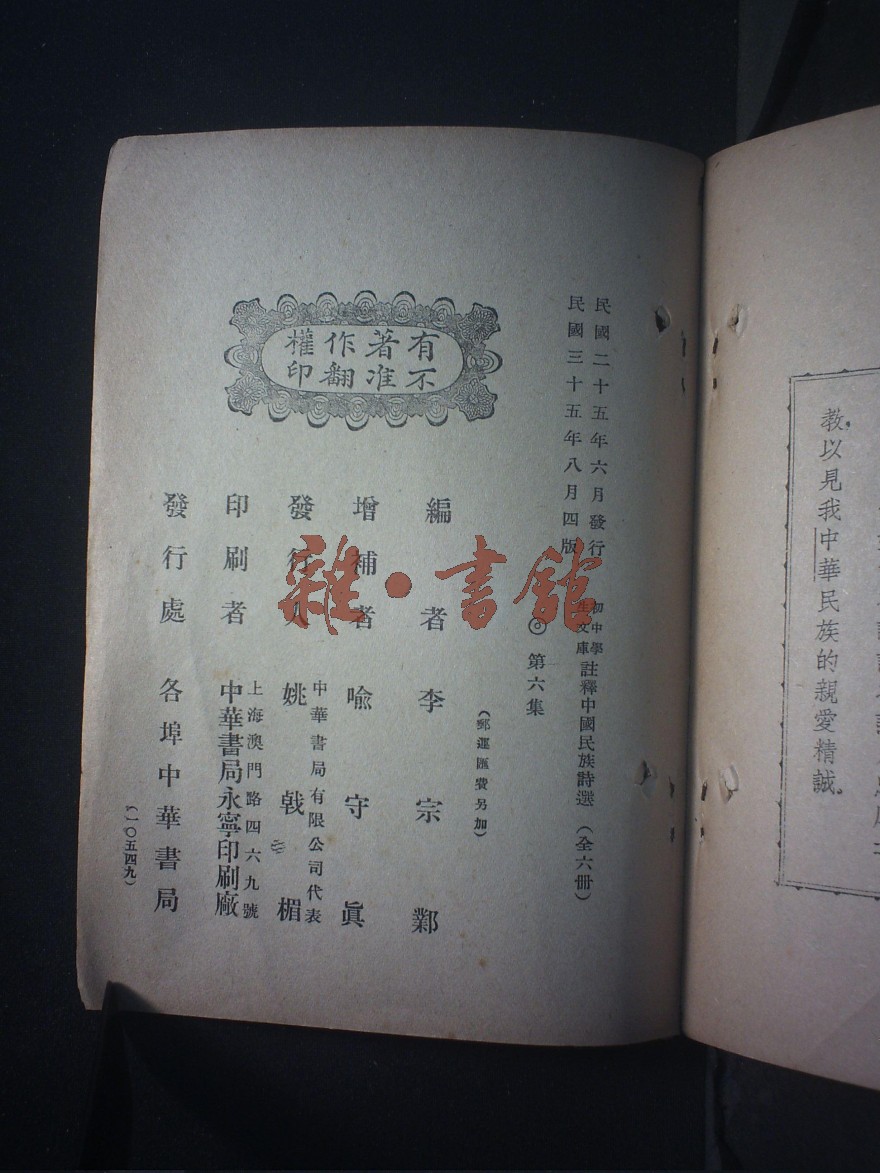 教,以見我中華民族的親愛精誠。
民國二十五年六月發行
民國三十五年八月四版
初中學生文庫
註釋中國民族詩選(全六冊)
◎第六集
(郵運匯費另加)
有不
著准
作翻
權印
編者 李宗鄴
增補者 喻守眞
中華書局有限公司代表
發行人 姚戟楣
上海澳門路四六九號
印刷者 中華書局永寧印刷廠
發行處 各埠中華書局
(一〇五四九)
雜·書館